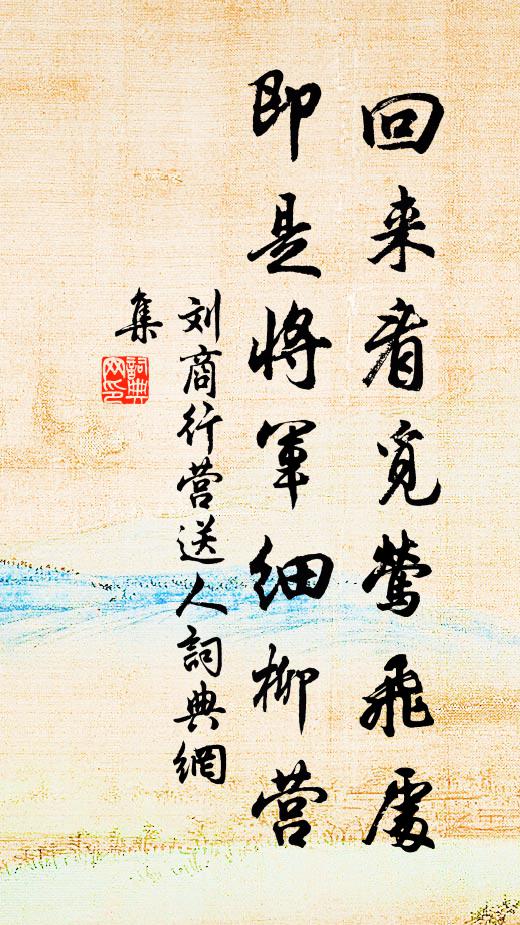 回来看觅莺飞处
即是将军细柳营
刘商行营送人詞典網
集
詞典网印